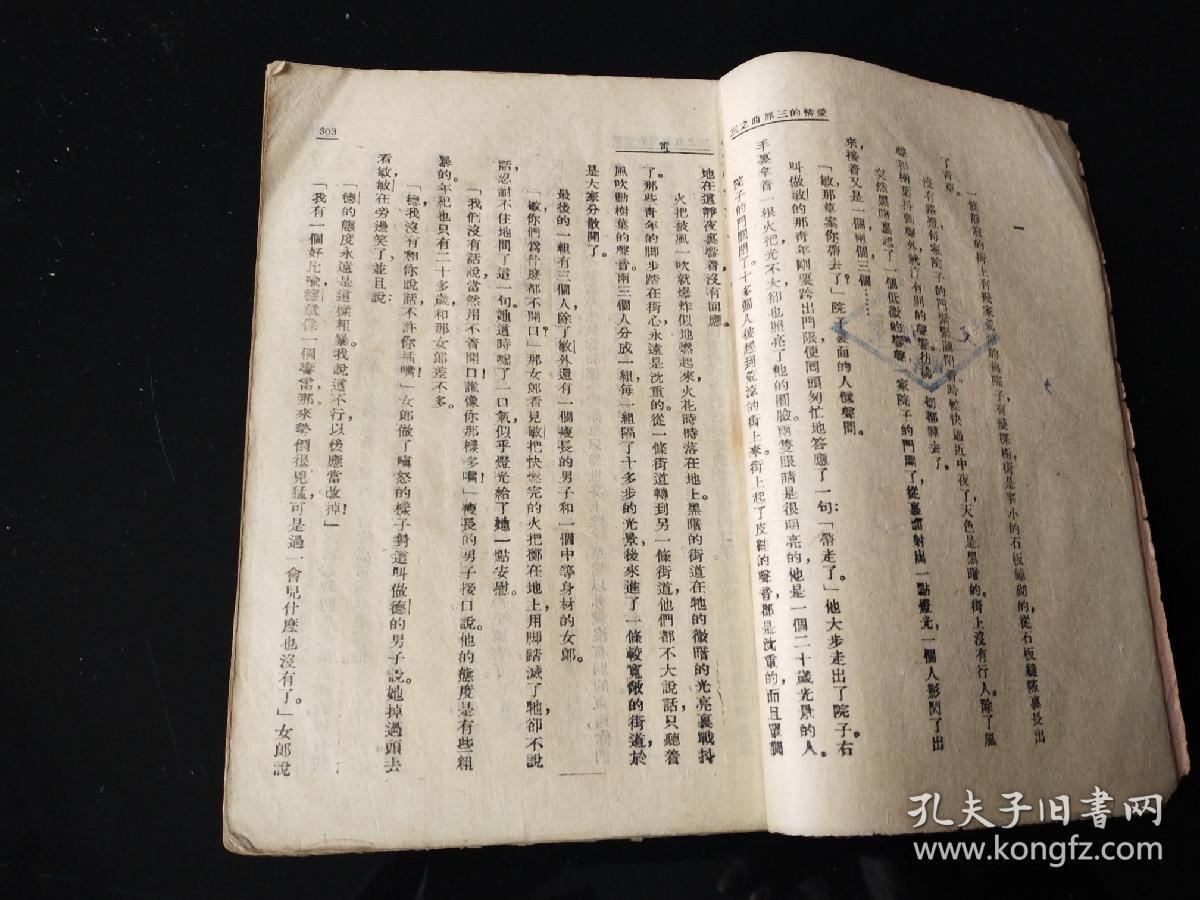 愛情的三部曲之三
一
一條靜寂的街上有幾家荒涼的舊院子有幾棵樹街是窄小的石板舖的從石板縫隙裏長出
了靑草。
沒有路燈每家院子的門緊緊關閉着時候快過近中夜了天色是黑暗的街上沒有行人除了風
聲和樹葉抖動聲外就沒有別的聲響彷彿一切都歸去了。
突然黑暗裏起了一個低微的聲響一家院子的門開了從裏面射出一點燈光，一個人影閃了出
來接着又是一個兩個三個……
「敏那草案你帶去了？」院子裏面的人低聲問。
叫做敏的那靑年剛要跨出門限便囘頭匆忙地答應了一句：「帶走了。」他大步走出了院子右
手裏拿着一根火把光不大却也照亮了他的圓臉兩隻眼睛是很明亮的他是一個二十歲光景的人。
院子的門關閉了十多個人被趕到荒涼的街上來街上起了皮鞋的聲音都是沈重的而且單調
電
地在這靜夜裏響着沒有囘應。
火把被風一吹就爆炸似地燃起來火花時時落在地上黑暗的街道在牠的微暗的光亮裏戰抖
了。那些靑年的脚步踏在街心永遠是沈重的從一條街道轉到另一條街道他們都不大說話只聽着
風吹動樹葉的聲音兩三個人分成一組每一組隔了十多步的光景後來進了一條較寬敞的街道於
是大家分散開了。
最後的一組有三個人除了敏外還有一個瘦長的男子和一個中等身材的女郎。
「敏你們爲什麼都不開口」那女郎看見敏把快燃完的火把擲在地上用脚踏滅了牠卻不說
話忍耐不住地問了這一句她這時噓了一口氣似乎燈光給了她一點安慰。
「我們沒有話說當然用不着開口誰像你那樣多嘴」瘦長的男子接口說。他的態度是有些粗
暴的年紀也只有二十多歲和那女郎差不多。
「德我沒有和你說話不許你插嘴」女郎做了嗔怒的樣子對這叫做德的男子說。她掉過頭去
看敏敏在旁邊笑了並且說：
「德的態度永遠是這樣粗暴我說這不行以後應當改掉！」
「我有一個好比喩德就像一個響雷那來勢倒很兇猛可是過一會兒什麼也沒有了。」女郎說
303
孔夫子旧書网
www.kongfz.com